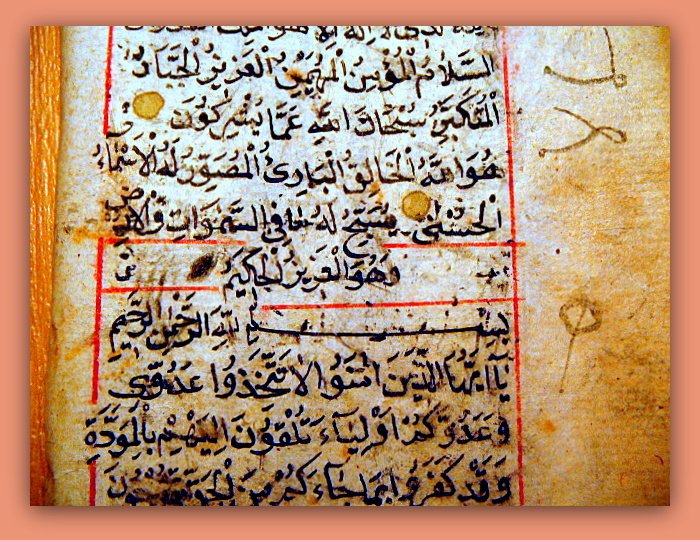 الَّذِي لَا إِلَهَ إِلَّا هُوَ الْمَلِكُ
السَّلَامُ الْمُؤْمِنُ الْمُهَيْمِنُ الْعَزِيزُ الْجَبَّارُ
الْمُتَكَبِّرُ سُبْحَانَ اللَّهِ عَمَّا يُشْرِكُونَ
هُوَ اللَّهُ الْخَالِقُ الْبَارِئُ الْمُصَوِّرُ لَهُ الْأَسْمَاءُ
الْحُسْنَى يُسَبِّحُ لَهُ مَا فِي السَّمَوَاتِ وَالْأَرْضِ
وَهُوَ الْعَزِيزُ الْحَكِيمُ
بِسْمِ اللَّهِ الرَّحْمَنِ الرَّحِيمِ
يَا أَيُّهَا الَّذِينَ آمَنُوا لَا تَتَّخِذُوا عَدُوِّي
وَعَدُوَّكُمْ أَوْلِيَاءَ تُلْقُونَ إِلَيْهِمْ بِالْمَوَدَّةِ
وَقَدْ كَفَرُوا بِمَا جَاءَكُمْ مِنَ الْحَقِّ